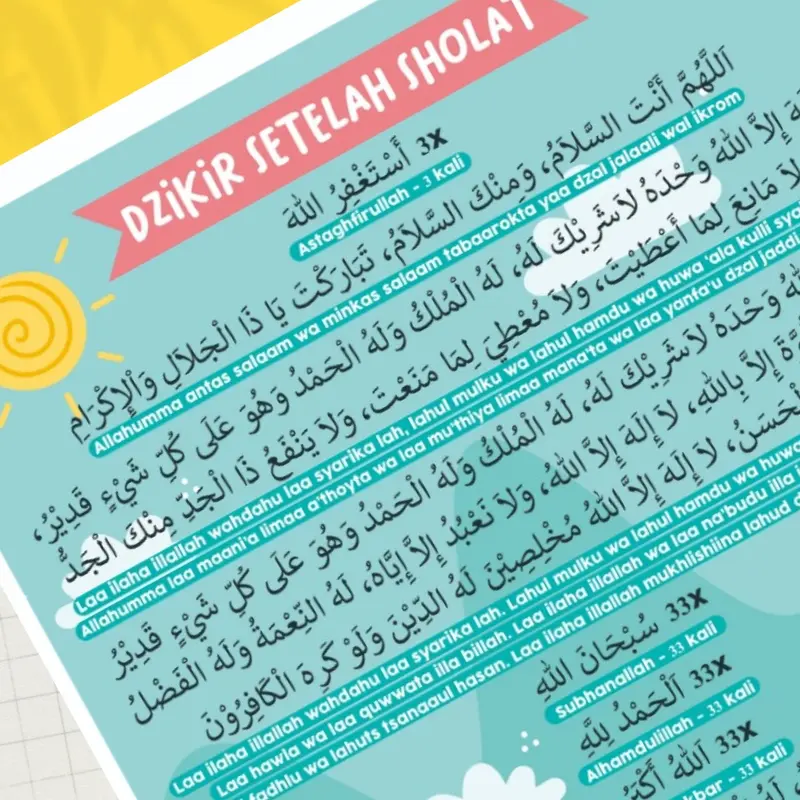 DZIKIR SETELAH SHOLAT
أَسْتَغْفِرُ اللهَ 3X
Astaghfirullah - 3 kali
اَللَّهُمَّ أَنْتَ السَّلاَمُ، وَمِنْكَ السَّلاَمُ، تَبَارَكْتَ يَا ذَا الْجَلاَلِ وَاْلإِكْرَامِ
Allahumma antas salaam wa minkas salaam tabaarokta yaa dzal jalaali wal ikrom
إِلاَّ اللهُ وَحْدَهُ لاَشَرِيْكَ لَهُ، لَهُ الْمُلْكُ وَلَهُ الْحَمْدُ وَهُوَ عَلَى كُلِّ شَيْءٍ قَدِيْرُ،
لاَ مَانِعَ لِمَا أَعْطَيْتَ، وَلاَ مُعْطِيَ لِمَا مَنَعْتَ، وَلاَ يَنْفَعُ ذَا الْجَدِّ مِنْكَ الْجَدُّ
Laa ilaha illallah wahdahu laa syarika lah, lahul mulku wa lahul hamdu wa huwa 'ala kulii
Allahumma laa maani'a limaa a'thoyta wa laa mu'thiya limaa mana'ta wa laa yanfa'u dzal jaddi
وَحْدَهُ لاَشَرِيْكَ لَهُ، لَهُ الْمُلْكُ وَلَهُ الْحَمْدُ وَهُوَ عَلَى كُلِّ شَيْءٍ قَدِيْرُ
إِلاَّ بِاللهِ، لاَ إِلَهَ إِلاَّ اللهُ، وَلاَ نَعْبُدُ إِلاَّ إِيَّاهُ، لَهُ النِّعْمَةُ وَلَهُ الْفَضْلُ
لاَ إِلَهَ إِلاَّ اللهُ مُخْلِصِيْنَ لَهُ الدِّيْنَ وَلَوْ كَرِهَ الْكَافِرُوْنَ
Laa ilaha illallah wahdahu laa syarika lah. Lahul mulku wa lahul hamdu wa huwa
Laa hawla wa laa quwwata illa billah. Laa ilaha illallah wa laa na'budu illa
fadhlu wa lahuts tsanaaul hasan. Laa ilaha illallah mukhlishiina lahud
سُبْحَانَ اللهِ 33X
Subhanallah - 33 kali
اَلْحَمْدُ لِلَّهِ 33X
Alhamdulillah - 33 kali
اَللهُ أَكْبَرُ 33X
- 33 kali